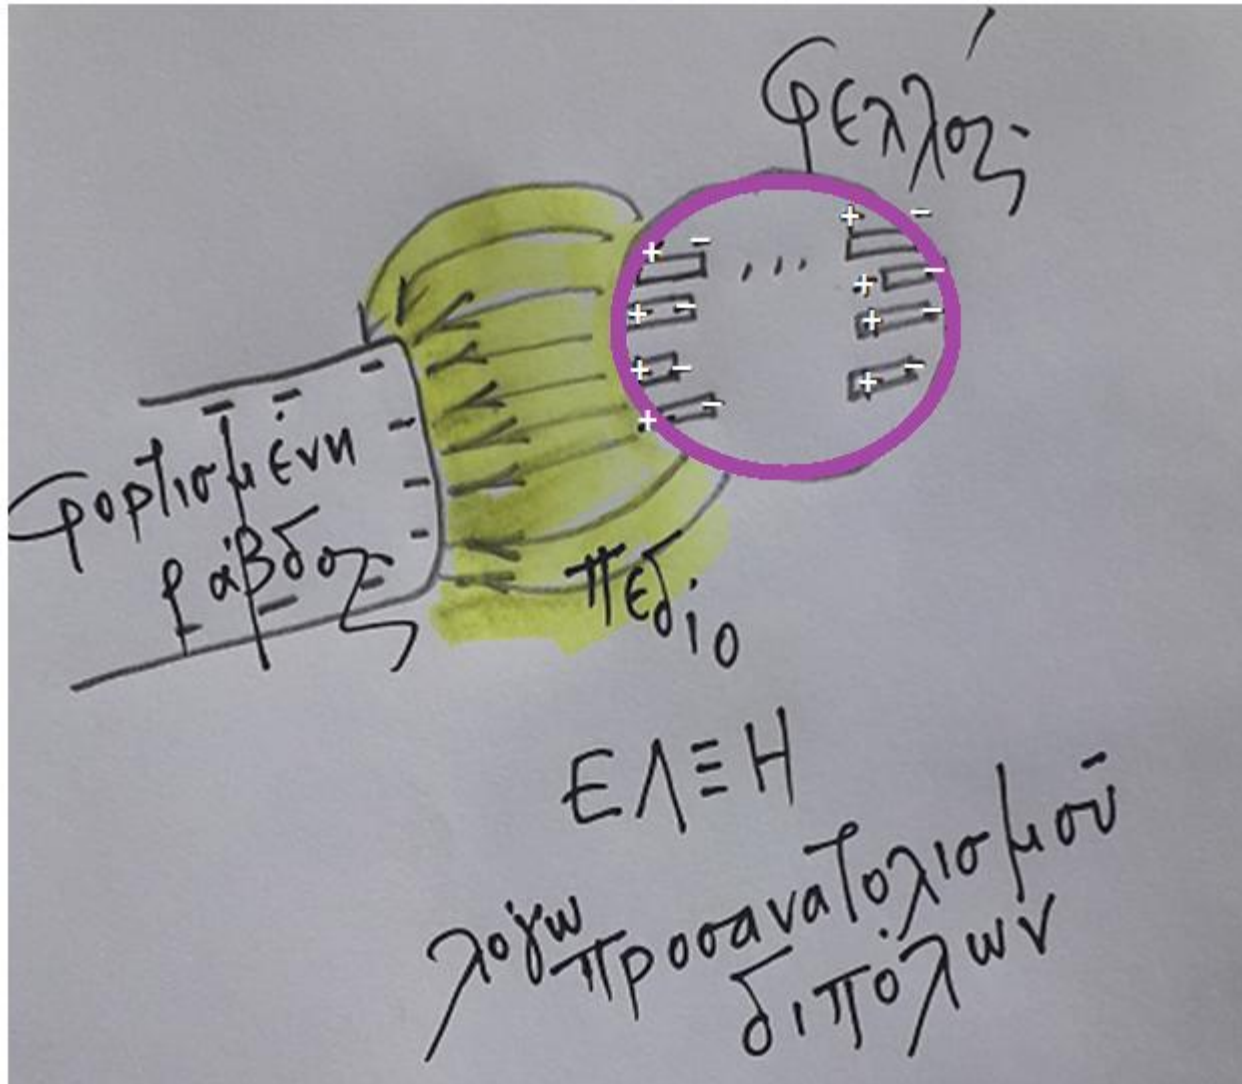 φελλός
φορτισμένη
ράβδος
πεδίο
ΕΛΞΗ
λόγω
προσανατολισμού
διπόλων